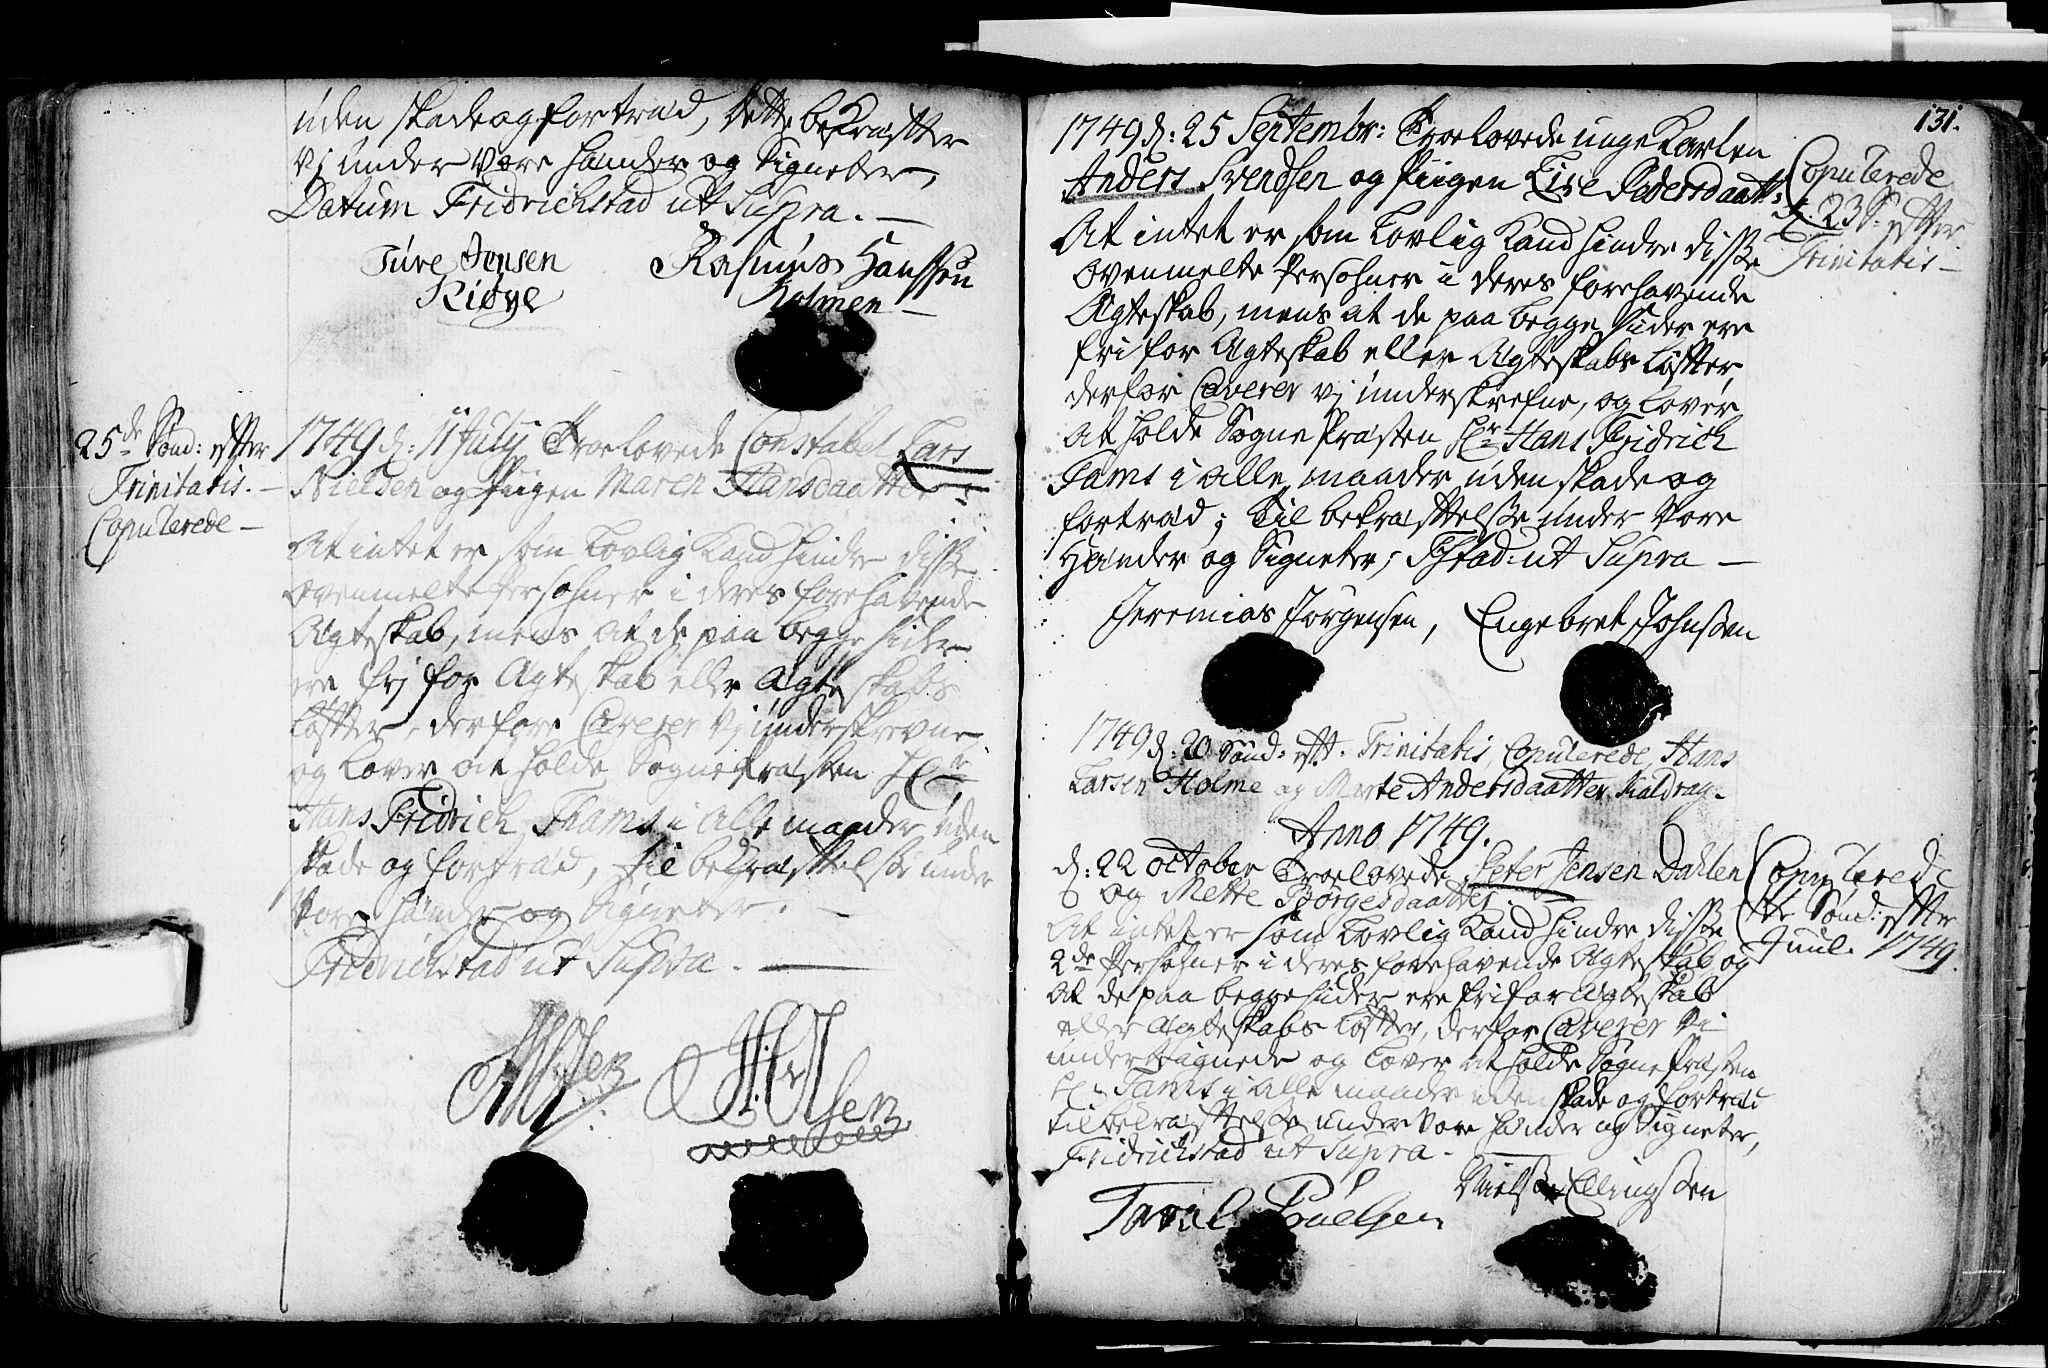 uden skade og fortræd, dette bekræfter
vj under vore hænder og Signeter,
Datum Fridrichstad ut Supra. —
Ture Jensen Rasmus Hanssen
Kiøge Holmen —
25de Sønd: efter
Trinitatis. —
Copulerede —
1749 d: 11 July Troelovede Constabel Lars
Nielsen og Piigen Maren Hansdaatter
At intet er som Lovlig Kand hindre disse
ovenmelte Persohner i deres forehavende
Ægteskab, mens at de paa begge sider
ere frj for Ægteskab eller Ægteskabs
Løfter, derfore Caverer vj underskrevne,
og Lover at holde Sogne Præsten Hr
Hans Fridrich Thams i alle maader uden
skade og fortræd, til bekræftelse under
vore hænder og Signeter. —
Fridrichstad ut Supra. —
Olsen
131.
1749 d: 25 Septembr: Troelovede unge Karlen
Anders Svendsen og Piigen Lise Pedersdaatt:
Copulerede
d. 23 S: efter
Trinitatis —
At intet er som Lovlig Kand hindre disse
ovenmelte Persohner i deres forehavende
Ægteskab, mens at de paa begge sider ere
fri for Ægteskab eller Ægteskabs Løfter,
derfor Caverer vj underskrefne, og Lover
at holde Sogne Præsten Hr Hans Fridrich
Tams i alle maader uden skade og
fortræd; Til bekræftelse under vore
Hænder og Signeter, Fstad ut Supra —
Jeremias Jørgensen, Engebret Johnsen
1749 d: 20 Sønd: eft. Trinitatis, Copulerede, Hans
Larsen Holme og Marte Andersdaatter Kaldrag.
Anno 1749.
d: 22 october Troelovede Peter Jensen Dahlen
og Mette Børgesdaatter.
Copulerede
Sønd: efter
Juul. 1749.
At intet er som Lovlig Kand hindre disse
2de Persohner i deres forehavende Ægteskab og
at de paa begge sider ere fri for Ægteskab
eller Ægteskabs Løfter, derfor Caverer vi
undertegnede og Lover at holde Sogne Præsten
Hr Tams i alle maader uden skade og fortræd
til bekræftelse under vore hænder og Signeter,
Fridrichstad ut Supra. —
Niels Ellingsen
Poulsen